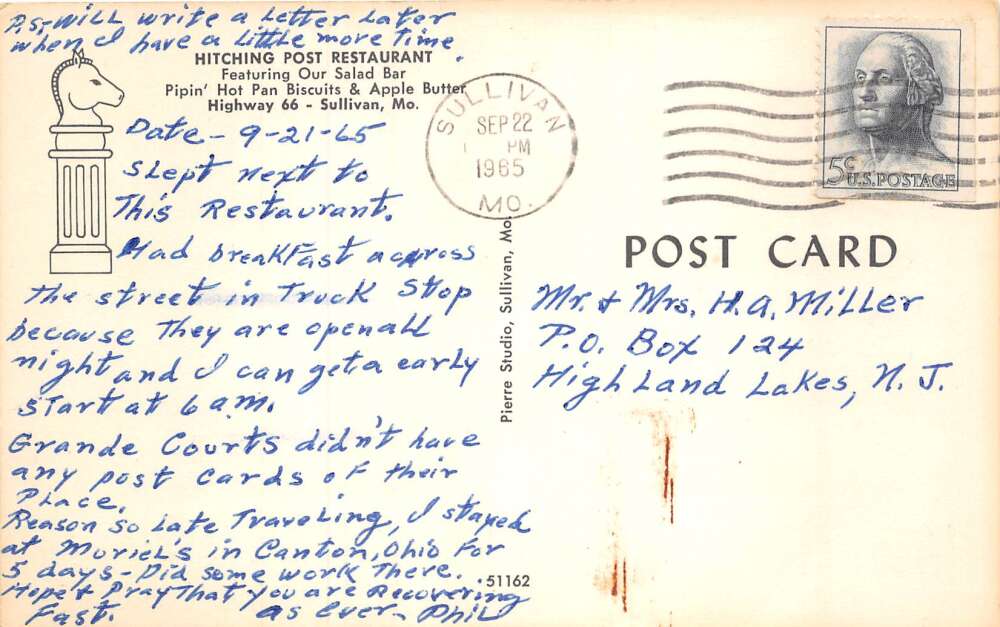 P.S.-Will write a Letter Later
when I have a Little more Time.
HITCHING POST RESTAURANT
Featuring Our Salad Bar
Pipin' Hot Pan Biscuits & Apple Butter
Highway 66 - Sullivan, Mo.
Date - 9-21-65
Slept next to
This Restaurant.
Had breakfast across
The street in Truck Stop
because They are open all
night and I can get a early
Start at 6 a.m.
Grande Courts didn't have
any post cards of their
Place.
Reason So Late Traveling, I stayed
at Muriel's in Canton, Ohio for
5 days - Did some work There.
Hope & Pray That you are Recovering
Fast. as Ever - Phil
51162
Pierre Studio, Sullivan, Mo.
SULLIVAN
SEP 22
PM
1965
MO.
5¢ U.S. POSTAGE
POST CARD
Mr. & Mrs. H.A. Miller
P.O. Box 124
High Land Lakes, N.J.